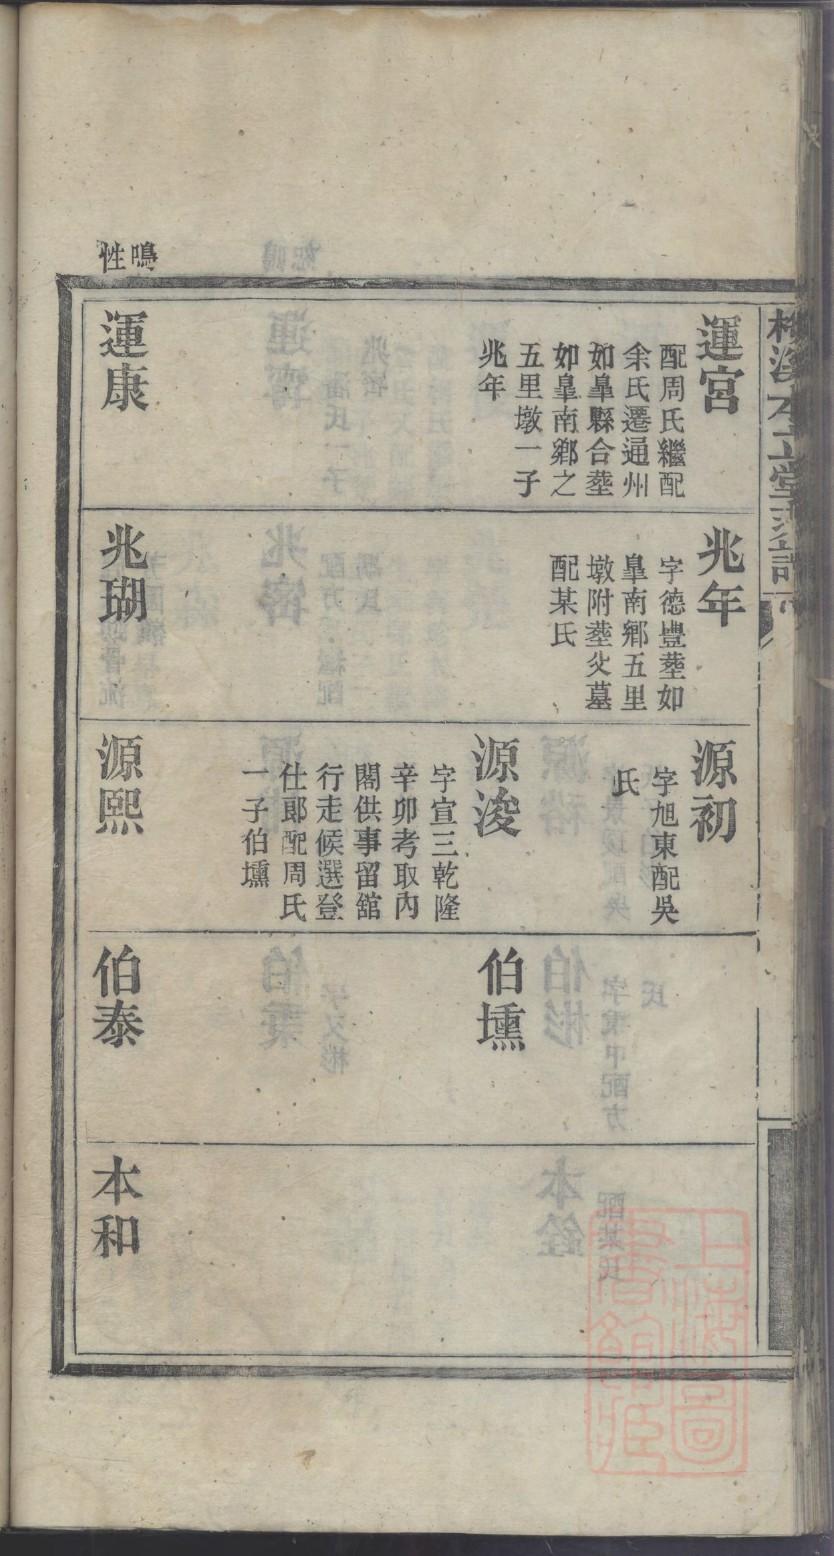 鳴
性
運宮
配周氏繼配
余氏遷通州
如臯縣合塟
如臯南鄉之
五里墩一子
兆年
運康
兆年
字德豐塟如
臯南鄉五里
墩附塟父墓
配某氏
兆瑚
源初
字旭東配吳
氏
源浚
字宣三乾隆
辛卯考取內
閣供事留舘
行走候選登
仕郎配周氏
一子伯壎
源熙
伯壎
伯泰
本和
上海圖
書館藏